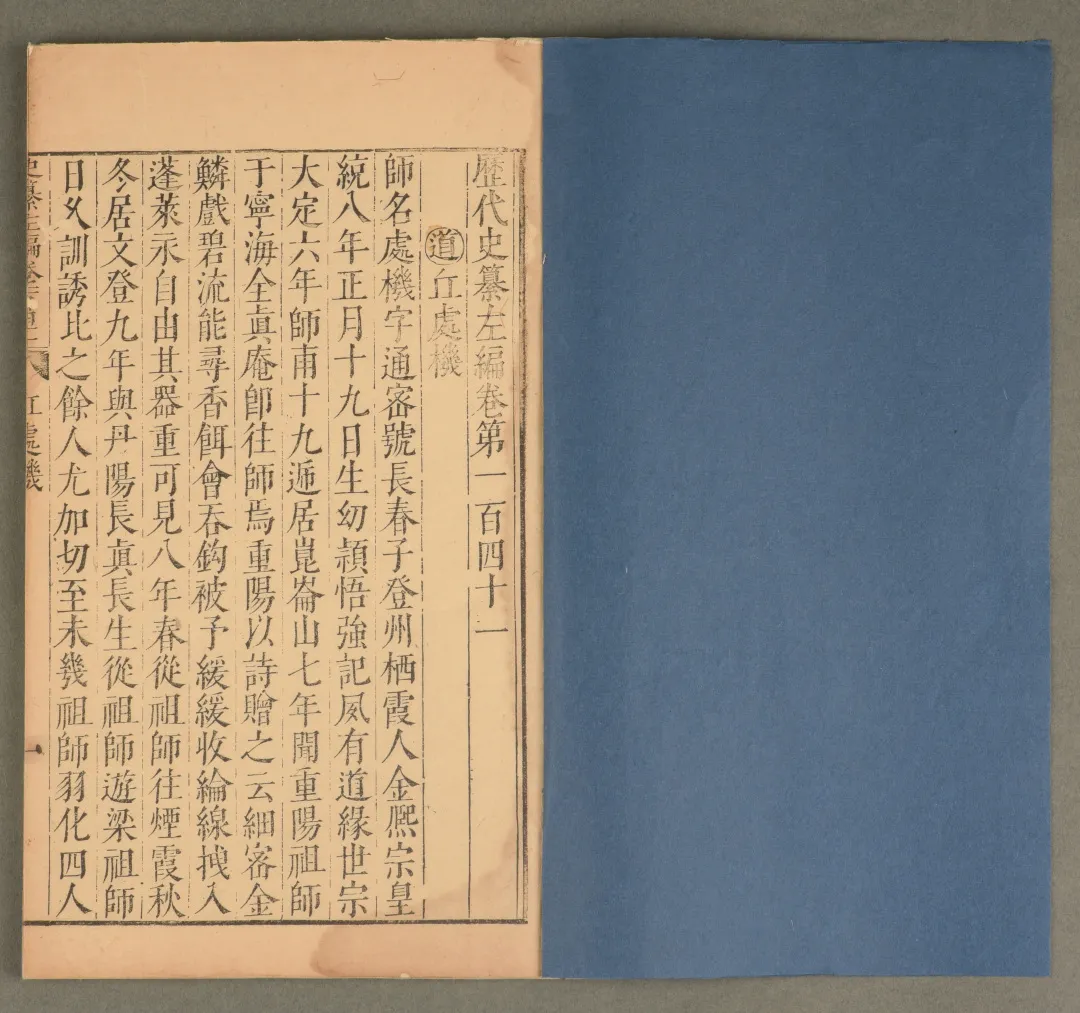 歷代史纂左編卷第一百四十一
道丘處機
師名處機字通密號長春子登州栖霞人金熈宗皇
統八年正月十九日生幼頴悟強記夙有道緣世宗
大定六年師甫十九遁居崑崙山七年聞重陽祖師
于寧海全眞庵卽往師焉重陽以詩贈之云細密金
鱗戲碧流能尋香餌會吞鈎被予緩緩收綸線拽入
蓬萊永自由其器重可見八年春從祖師往煙霞秋
冬居文登九年與丹陽長眞長生從祖師遊梁祖師
日夕訓誘比之餘人尤加切至未幾祖師羽化四人
史纂左編卷 處機 一